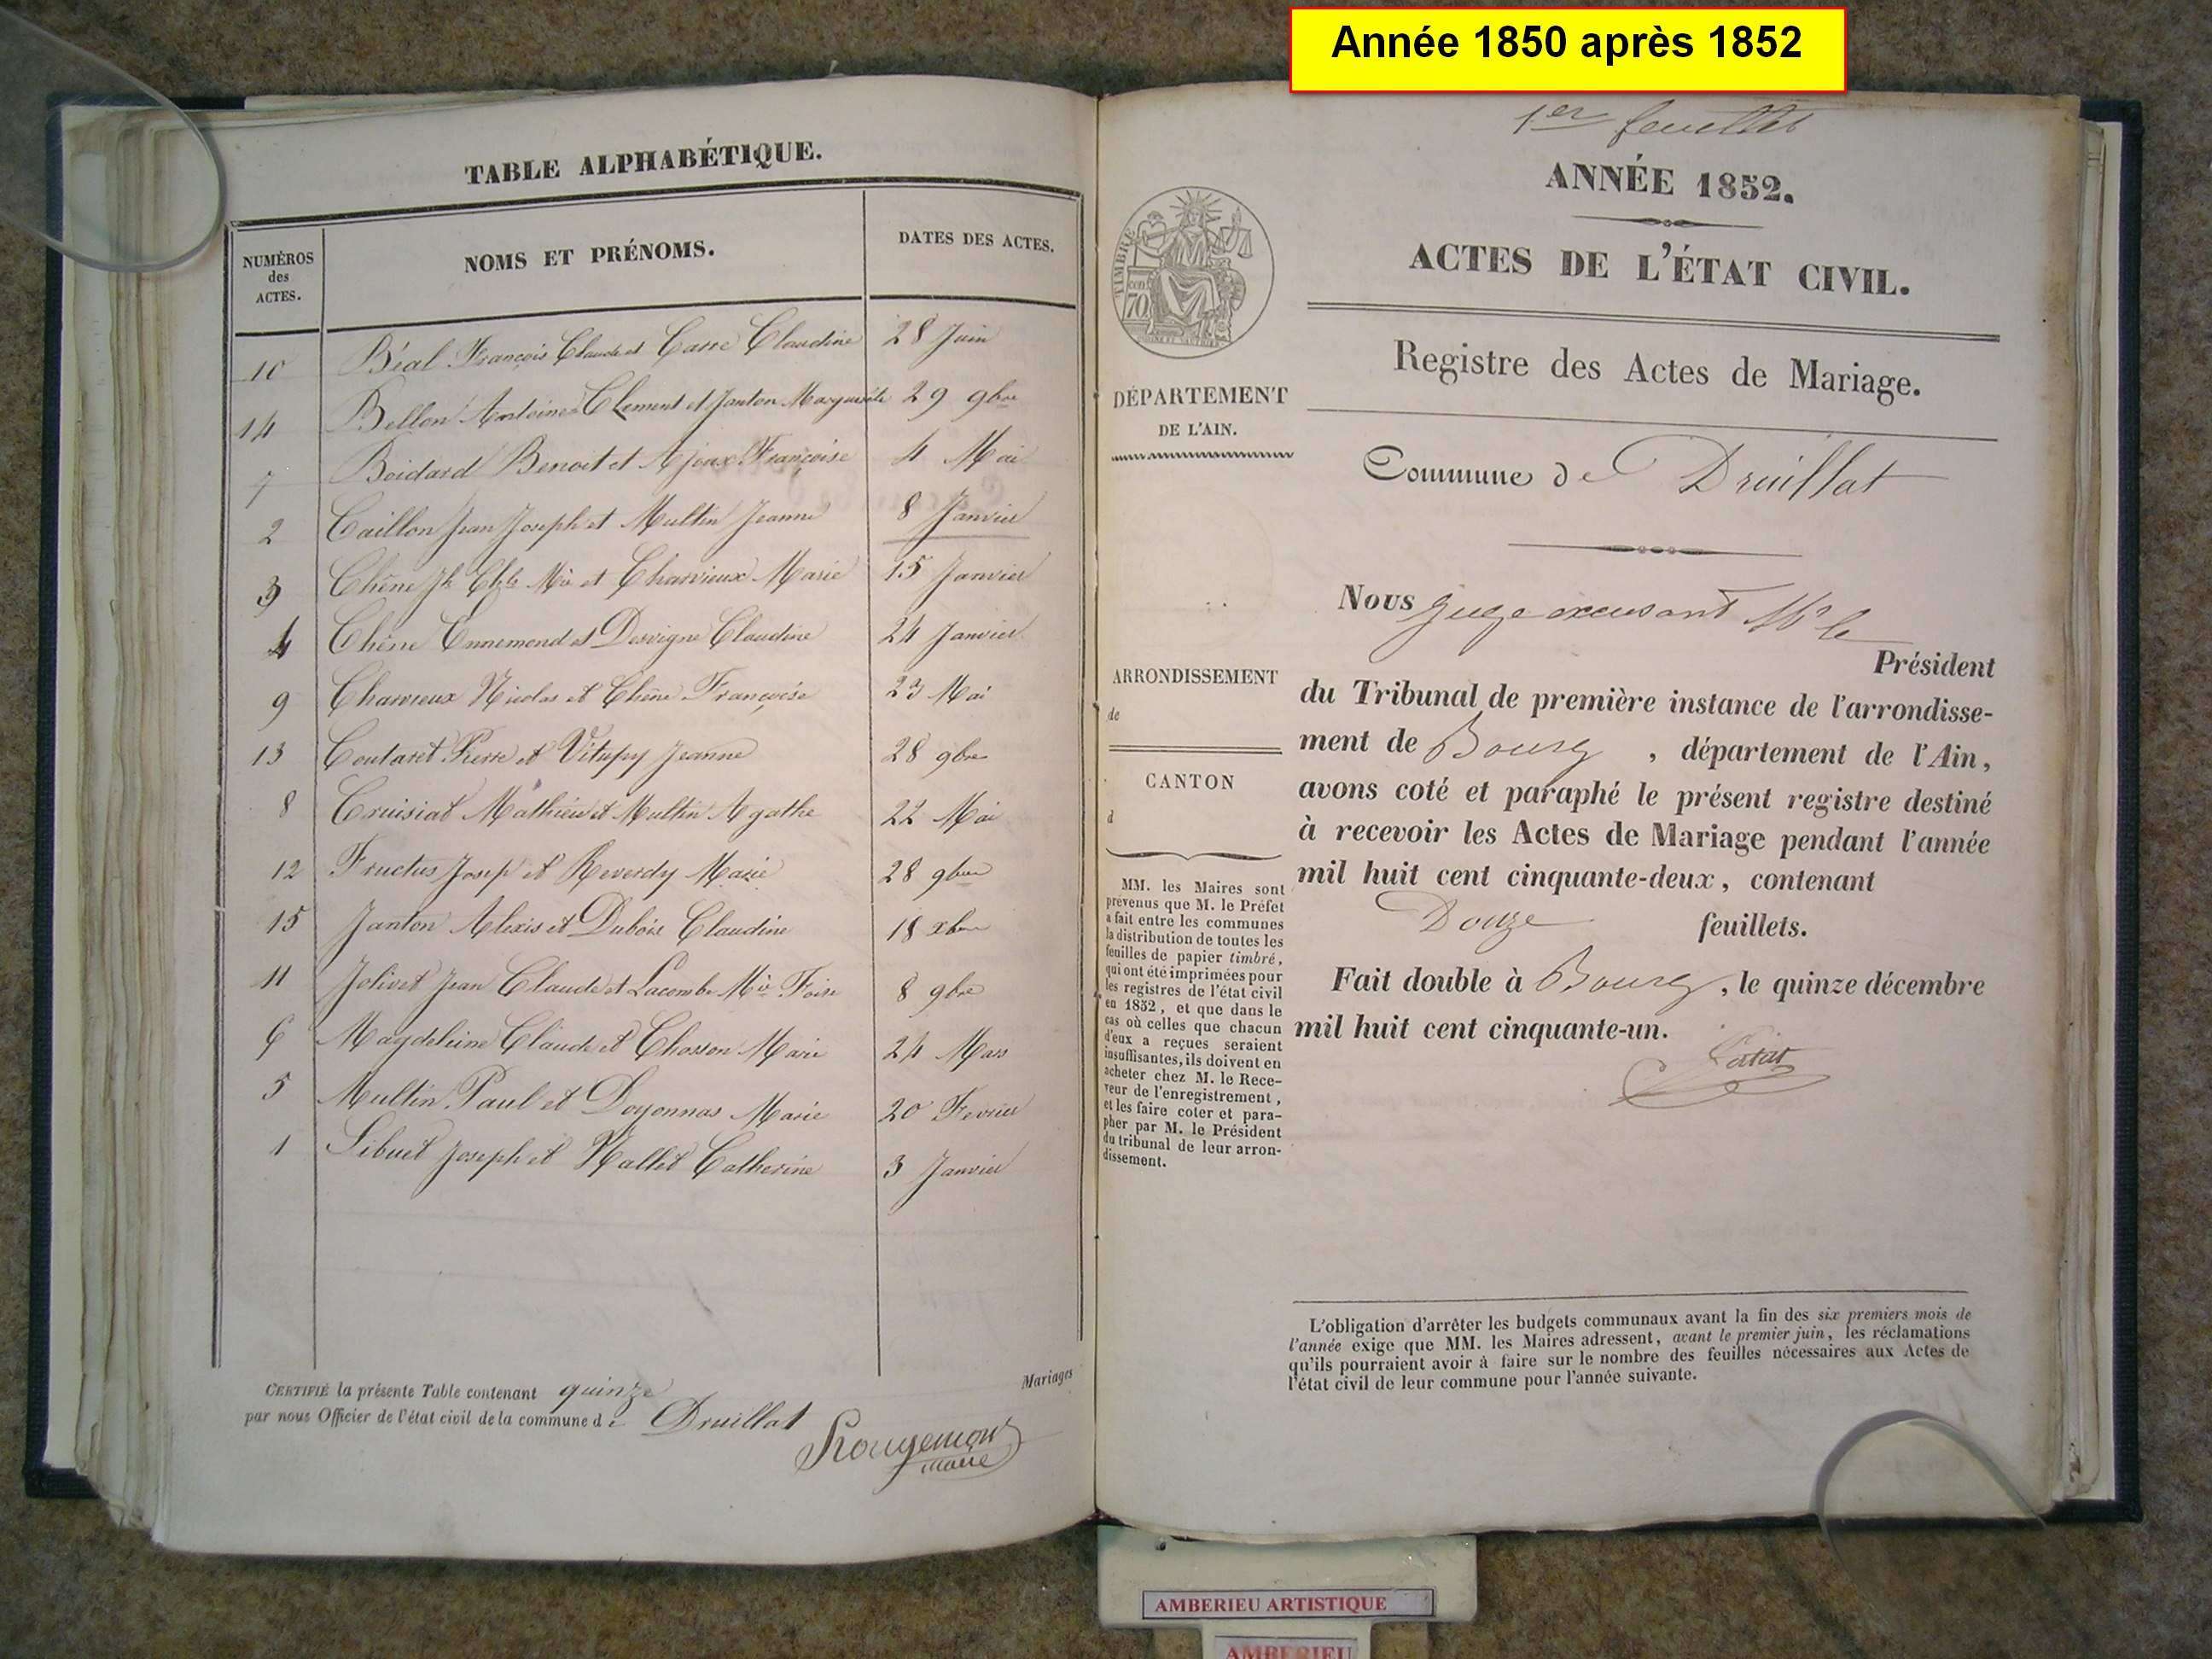 Année 1850 après 1852
TABLE ALPHABÉTIQUE.
NUMÉROS des ACTES. NOMS ET PRÉNOMS. DATES DES ACTES.
10 Béal François Claude et Carre Claudine 28 Juin
14 Bellon Antoine Clement et Janton Marguerite 29 9bre
7 Boidard Benoit et Ajoux Françoise 4 Mai
2 Caillon Jean Joseph et Multin Jeanne 8 Janvier
3 Chêne Jh Chls Mie et Charvieux Marie 15 Janvier
4 Chêne Ennemond et Desvigne Claudine 24 Janvier
9 Charvieux Nicolas et Chêne Françoise 23 Mai
13 Coutaret Pierre et Vitupy Jeanne 28 9bre
8 Cruisiat Mathieu et Multin Agathe 22 Mai
12 Fructus Josep et Reverdy Marie 28 9bre
15 Janton Alexis et Dubois Claudine 18 xbre
11 Jolivet Jean Claude et Lacombe Mie Foise 8 9bre
6 Magdeleine Claude et Chosson Marie 24 Mars
5 Multin Paul et Doyonnas Marie 20 Fevrier
1 Sibuet Joseph et Nallet Catherine 3 Janvier
Mariages
CERTIFIÉ la présente Table contenant quinze
par nous Officier de l'état civil de la commune de Druillat
Rougemont
maire
1er feuillet
ANNÉE 1852.
ACTES DE L'ÉTAT CIVIL.
Registre des Actes de Mariage.
Commune de Druillat
TIMBRE
70
DÉPARTEMENT
DE L'AIN.
ARRONDISSEMENT
de
CANTON
d
MM. les Maires sont
prévenus que M. le Préfet
a fait entre les communes
la distribution de toutes les
feuilles de papier timbré,
qui ont été imprimées pour
les registres de l'état civil
en 1852, et que dans le
cas où celles que chacun
d'eux a reçues seraient
insuffisantes, ils doivent en
acheter chez M. le Rece-
veur de l'enregistrement,
et les faire coter et para-
pher par M. le Président
du tribunal de leur arron-
dissement.
Nous juge excusant Mr le
Président
du Tribunal de première instance de l'arrondisse-
ment de Bourg, département de l'Ain,
avons coté et paraphé le présent registre destiné
à recevoir les Actes de Mariage pendant l'année
mil huit cent cinquante-deux, contenant
Douze feuillets.
Fait double à Bourg, le quinze décembre
mil huit cent cinquante-un.
L'obligation d'arrêter les budgets communaux avant la fin des six premiers mois de
l'année exige que MM. les Maires adressent, avant le premier juin, les réclamations
qu'ils pourraient avoir à faire sur le nombre des feuilles nécessaires aux Actes de
l'état civil de leur commune pour l'année suivante.
AMBERIEU ARTISTIQUE
AMBERIEU